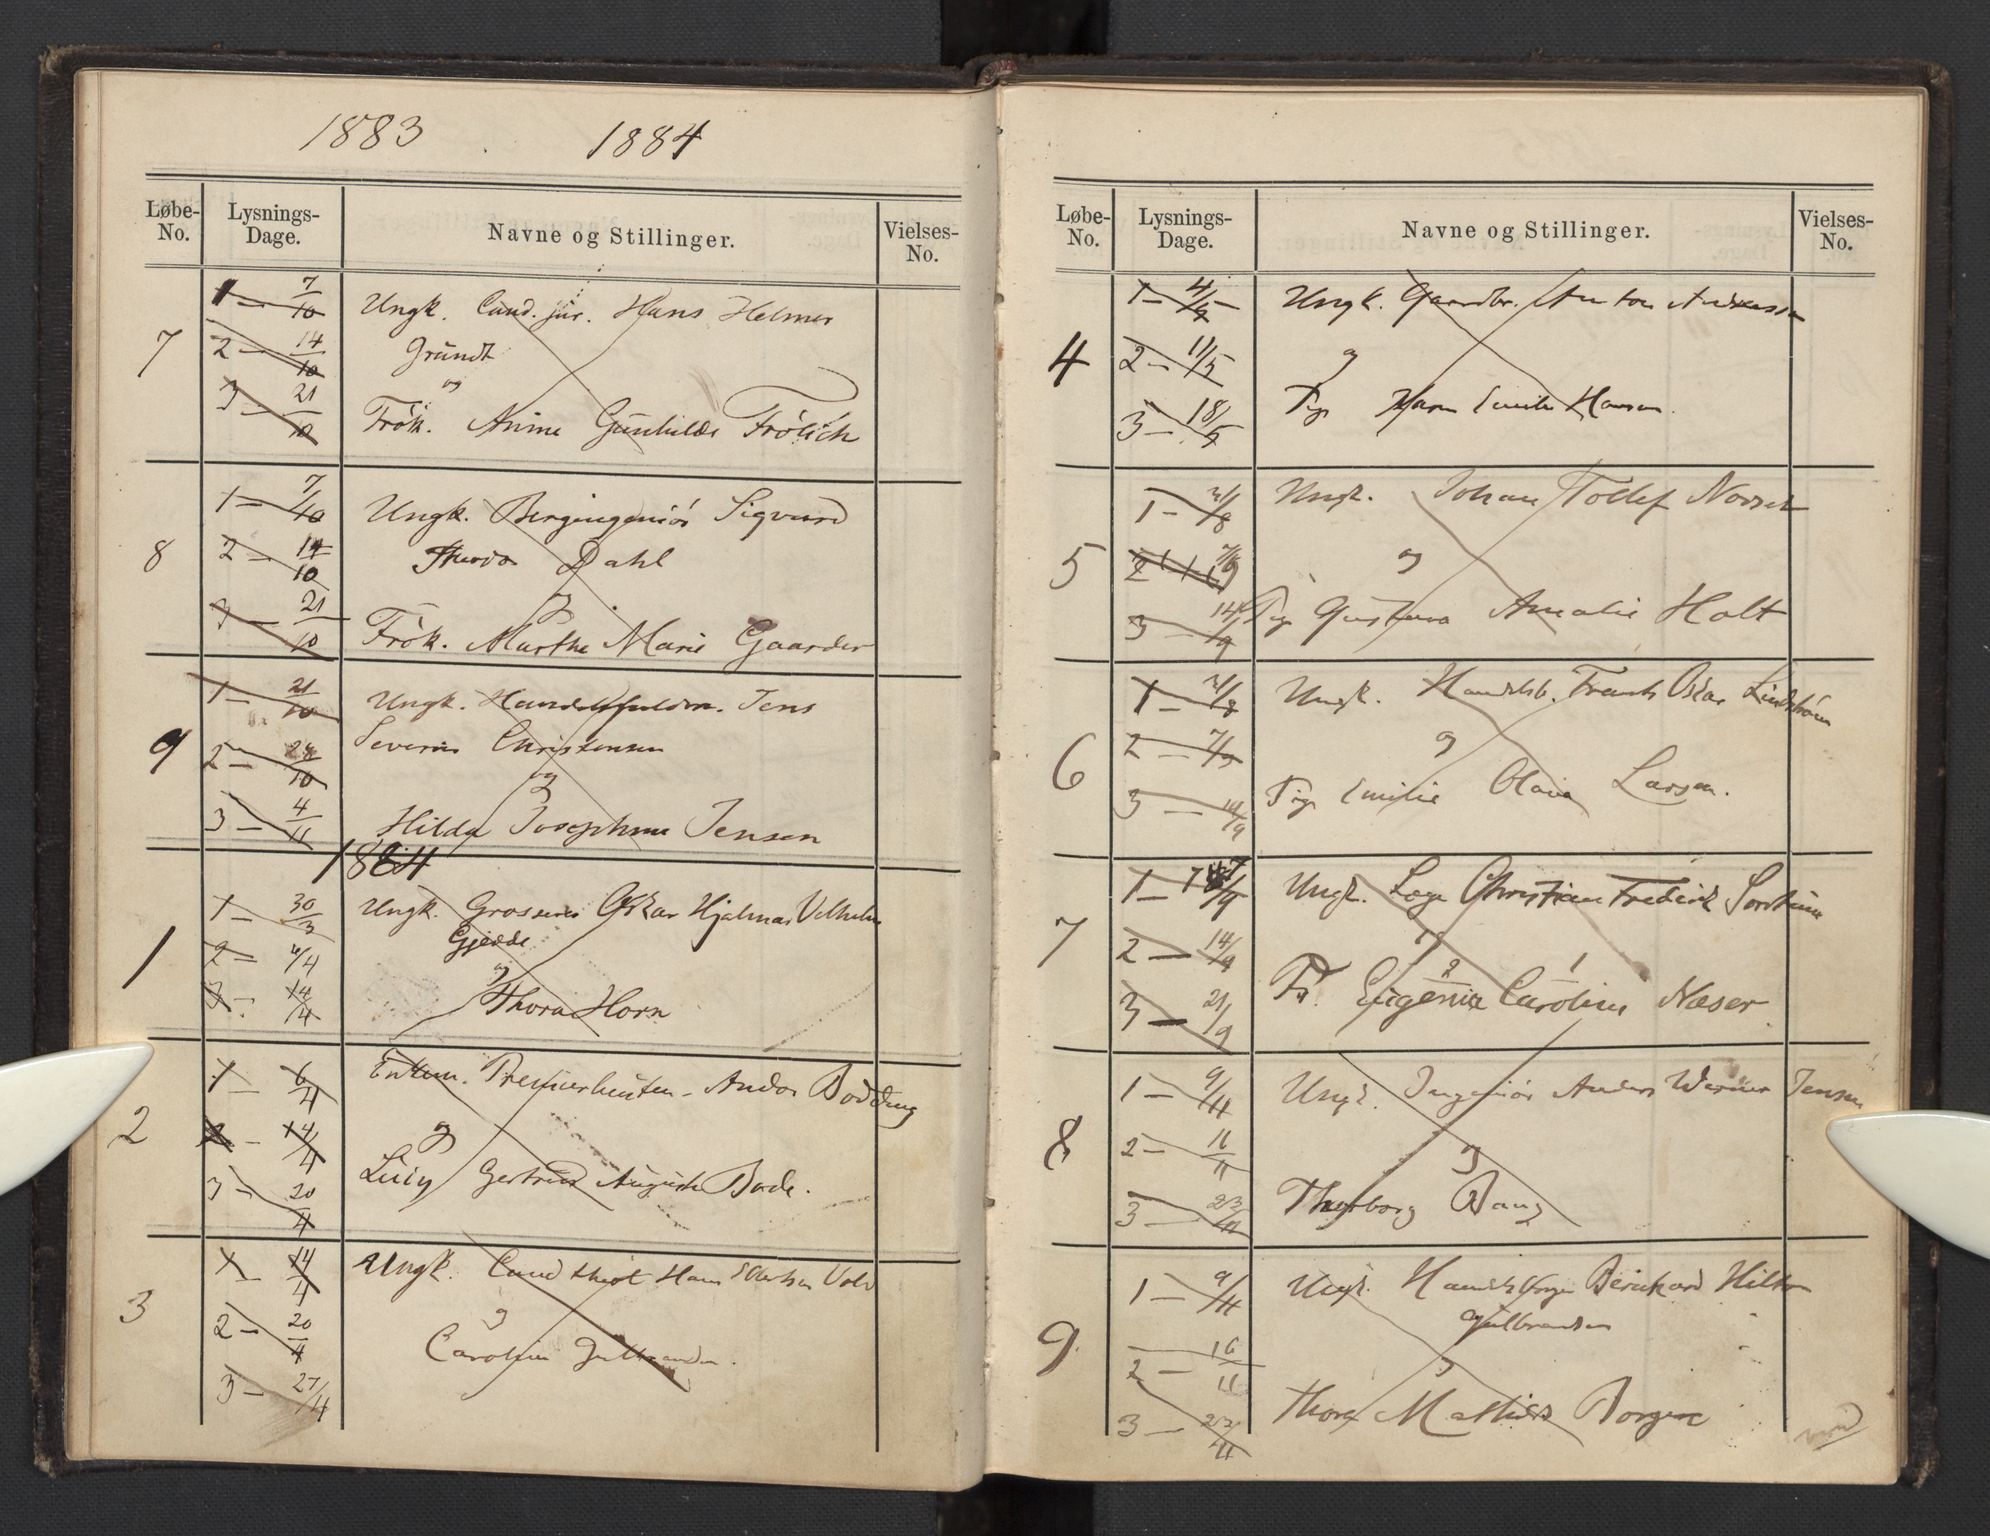 1883 1884
Løbe-No. Lysnings-Dage. Navne og Stillinger. Vielses-No.
7
1 - 7/10 Ungk. Cand. jur. Hans Helmer
2 - 14/10 Grundt
og
3 - 21/10 Frøk. Anine Gunhilde Frølich
8
1 - 7/10 Ungk. Bergingeniør Sigvard
2 - 14/10 Theodor Dahl
og
3 - 21/10 Frøk. Marthe Marie Gaarder
9
1 - 21/10 Ungk. Handelsfuldm. Jens
2 - 28/10 Severin Christensen
og
3 - 4/11 Hilda Josephine Jensen
1884
1
1 - 30/3 Ungk. Grosserer Oskar Hjalmar Vilhelm
Gjedde
2 - 6/4 og
3 - 14/4 Thora Horn
2
1 - 6/4 Enkem. Premierleuten. Andor Bødding
2 - 14/4 og
3 - 20/4 Lucy Gertrud Auguste Bode.
3
1 - 14/4 Ungk. Cand theol Hans
2 - 20/4 og
Caroline Gulbrandsen.
3 - 27/4
Løbe-No. Lysnings-Dage. Navne og Stillinger. Vielses-No.
4
1 - 4/5 Ungk. Gaardbr. Anton Andreassen
2 - 11/5 og
3 - 18/5 Pige Karen Emilie Hansen.
5
1 - 31/8 Ungk. Johan Tollef Nordset
2 - 7/9 og
3 - 14/9 Pige Gustava Amalie Holt
6
1 - 31/8 Ungk. Handelsb. Frants Oskar Lindstrøm
2 - 7/9 og
3 - 14/9 Pige Emilie Olava Larsen.
7
1 - 7/9 Ungk. Læge Christian Frederik
2 - 14/9 og
2 1
3 - 21/9 Fr. Eugenia Caroline Næser
8
1 - 9/11 Ungk. Ingeniør Anders Werner Jensen
2 - 16/11 og
3 - 23/11 Thorborg Bang
9
1 - 9/11 Ungk. Handelsborger Bernhard Hilmar
Gulbrandsen
2 - 16/11 og
Thora Mathilde Borgen
3 - 23/11